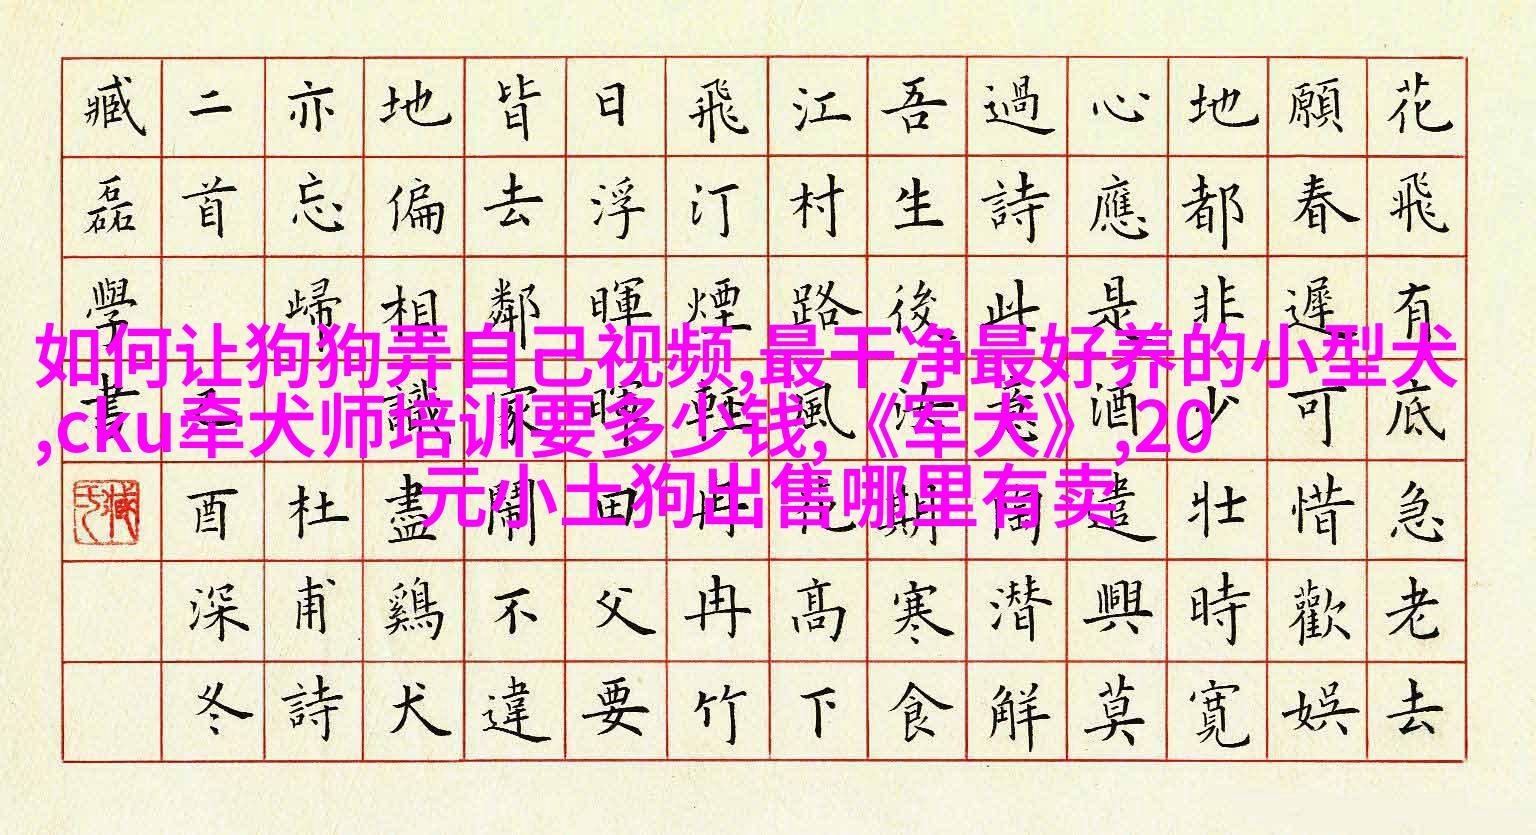 花飛有底急老去
願春遲可惜歡娛
地都非少壯時寬
心應是酒遣興莫
過詩此意陶潛解
吾生後汝期寒食
江村路風花高下
飛汀煙輕冉冉竹
日浮暉暉田父要
皆去鄰家鬧不違
地偏相識盡鷄犬
亦忘歸 杜甫詩
二首 乙酉深冬
臧磊學書
如何让狗狗弄自己视频,最干净最好养的小型犬
,cku牵犬师培训要多少钱,《军犬》,20
元小土狗出售哪里有卖